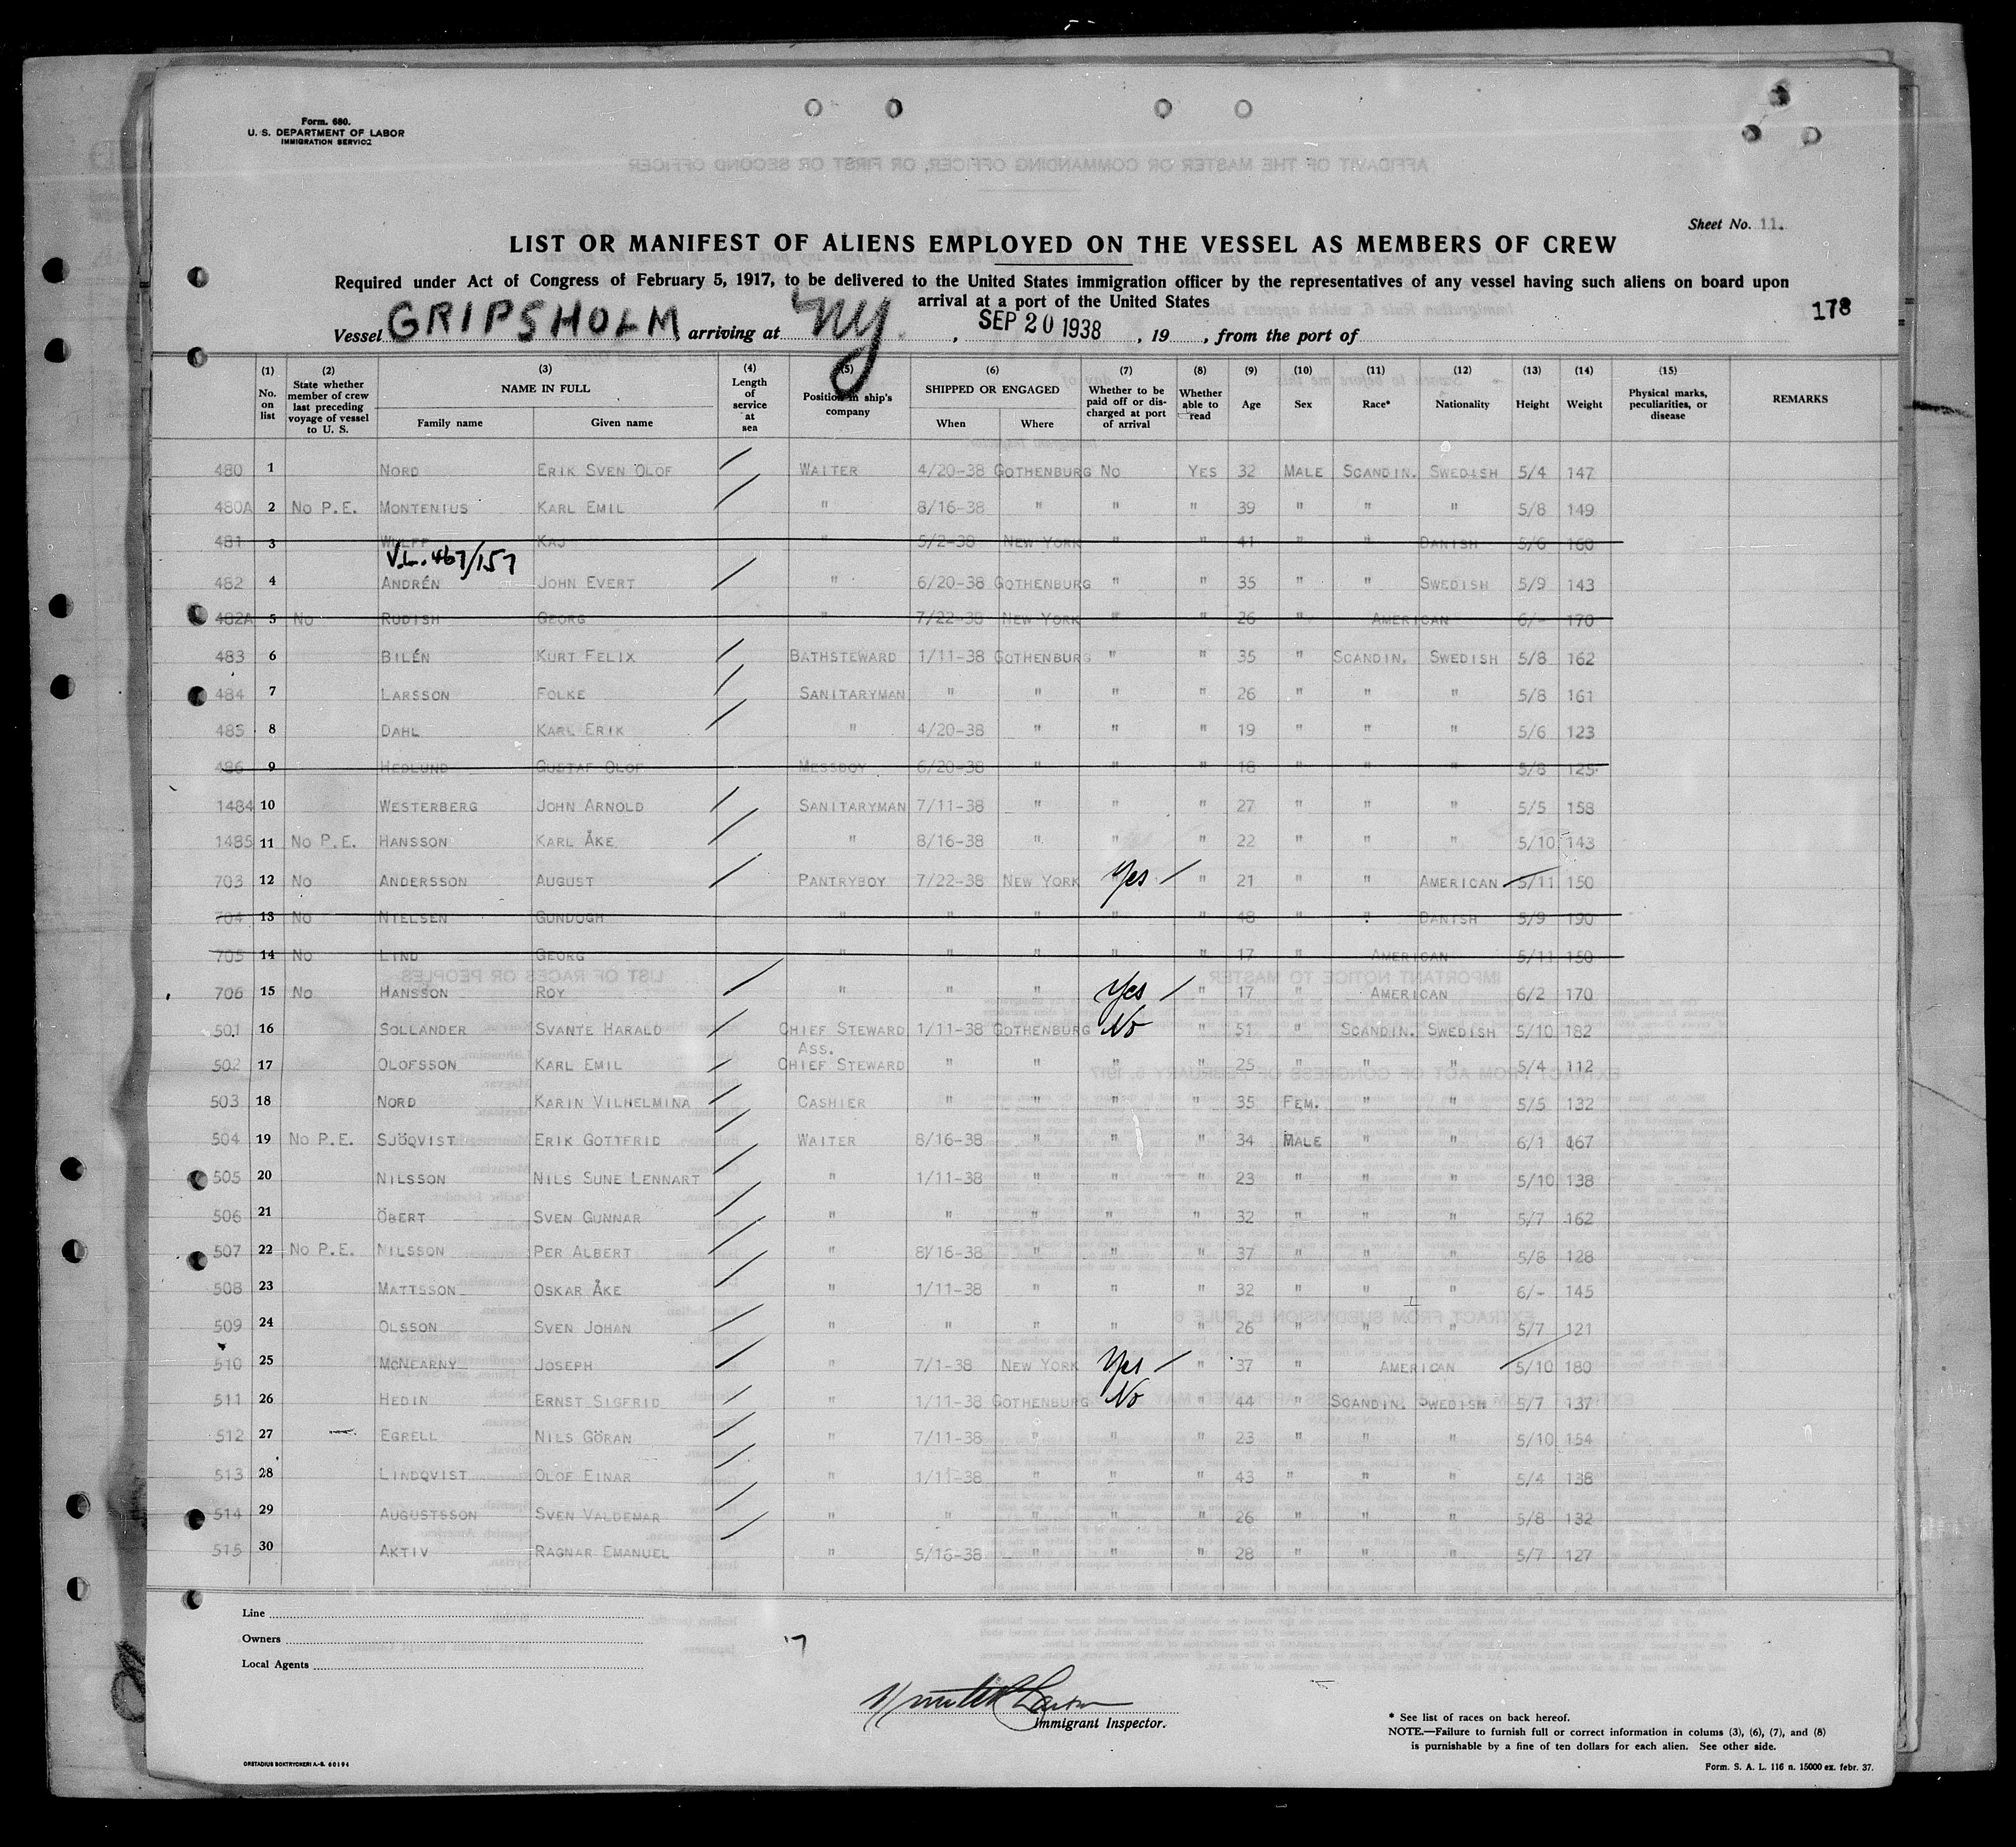 Form. 680.
U. S. DEPARTMENT OF LABOR
IMMIGRATION SERVICE
Sheet No. 11.
LIST OR MANIFEST OF ALIENS EMPLOYED ON THE VESSEL AS MEMBERS OF CREW
Required under Act of Congress of February 5, 1917, to be delivered to the United States immigration officer by the representatives of any vessel having such aliens on board upon
arrival at a port of the United States
178
Vessel GRIPSHOLM, arriving at NY., SEP 20 1938, 19 , from the port of
(1) No. on list (2) State whether member of crew last preceding voyage of vessel to U. S. (3) NAME IN FULL Family name Given name (4) Length of service at sea (5) Position in ship's company (6) SHIPPED OR ENGAGED When Where (7) Whether to be paid off or discharged at port of arrival (8) Whether able to read (9) Age (10) Sex (11) Race* (12) Nationality (13) Height (14) Weight (15) Physical marks, peculiarities, or disease REMARKS
480 1 NORD ERIK SVEN OLOF / WAITER 4/20-38 GOTHENBURG NO YES 32 MALE SCANDIN. SWEDISH 5/4 147
480A 2 NO P.E. MONTENIUS KARL EMIL / " 8/16-38 " " " 39 " " " 5/8 149
481 3 WULFF KAJ " 5/2-38 NEW YORK " " 41 " " DANISH 5/6 160
V.L. 467/157
482 4 ANDRÉN JOHN EVERT / " 6/20-38 GOTHENBURG " " 35 " " SWEDISH 5/9 143
482A 5 NO RUDISH GEORG " 7/22-38 NEW YORK " " 26 " AMERICAN 6/- 170
483 6 BILÉN KURT FELIX / BATHSTEWARD 1/11-38 GOTHENBURG " " 35 " SCANDIN. SWEDISH 5/8 162
484 7 LARSSON FOLKE / SANITARYMAN " " " " 26 " " " 5/8 161
485 8 DAHL KARL ERIK / " 4/20-38 " " " 19 " " " 5/6 123
486 9 HEDLUND GUSTAF OLOF MESSBOY 6/20-38 " " " 18 " " " 5/8 125
1484 10 WESTERBERG JOHN ARNOLD / SANITARYMAN 7/11-38 " " " 27 " " " 5/5 158
1485 11 NO P.E. HANSSON KARL ÅKE / " 8/16-38 " " " 22 " " " 5/10 143
703 12 NO ANDERSSON AUGUST / PANTRYBOY 7/22-38 NEW YORK Yes / " 21 " " AMERICAN 5/11 150
704 13 NO NIELSEN GUNDOGH " " " " " 48 " " DANISH 5/9 190
705 14 NO LIND GEORG " " " " " 17 " AMERICAN 5/11 150
706 15 NO HANSSON ROY / " " " Yes / " 17 " AMERICAN 6/2 170
501 16 SOLLANDER SVANTE HARALD / CHIEF STEWARD 1/11-38 GOTHENBURG No " 51 " SCANDIN. SWEDISH 5/10 182
502 17 OLOFSSON KARL EMIL / ASS. CHIEF STEWARD " " " " 25 " " " 5/4 112
503 18 NORD KARIN VILHELMINA / CASHIER " " " " 35 FEM. " " 5/5 132
504 19 NO P.E. SJÖQVIST ERIK GOTTFRID / WAITER 8/16-38 " " " 34 MALE " " 6/1 167
505 20 NILSSON NILS SUNE LENNART / " 1/11-38 " " " 23 " " " 5/10 138
506 21 ÖBERT SVEN GUNNAR / " " " " " 32 " " " 5/7 162
507 22 NO P.E. NILSSON PER ALBERT / " 8/16-38 " " " 37 " " " 5/8 128
508 23 MATTSSON OSKAR ÅKE / " 1/11-38 " " " 32 " " " 6/- 145
509 24 OLSSON SVEN JOHAN / " " " " " 26 " " " 5/7 121
510 25 MCNEARNY JOSEPH / " 7/1-38 NEW YORK Yes / " 37 " AMERICAN 5/10 180
511 26 HEDIN ERNST SIGFRID / " 1/11-38 GOTHENBURG No " 44 " SCANDIN. SWEDISH 5/7 137
512 27 EGRELL NILS GÖRAN / " 7/11-38 " " " 23 " " " 5/10 154
513 28 LINDQVIST OLOF EINAR / " 1/11-38 " " " 43 " " " 5/4 138
514 29 AUGUSTSSON SVEN VALDEMAR / " " " " " 26 " " " 5/8 132
515 30 AKTIV RAGNAR EMANUEL / " 5/16-38 " " " 28 " " " 5/7 127
Line
Owners
Local Agents
Immigrant Inspector.
* See list of races on back hereof.
NOTE.—Failure to furnish full or correct information in colums (3), (6), (7), and (8)
is punishable by a fine of ten dollars for each alien. See other side.
ORSTADIUS BOKTRYCKERI A.-B. 60194
Form. S. A. L. 116 n. 15000 ex. febr. 37.